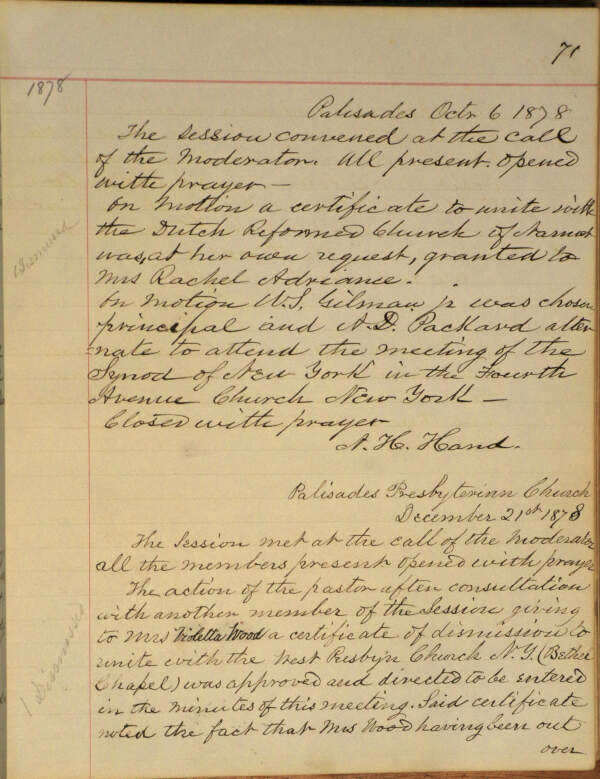 71
1878
Palisades Octr 6 1878
The Session convened at the call
of the Moderator. All present. Opened
with prayer —
On Motion a certificate to unite with
the Dutch Reformed Church of
Dismissed
was, at her own request, granted to
Mrs Rachel Adriance.
On Motion W.S. Gilman jr was chosen
principal and A.D. Packard alter
=nate to attend the meeting of the
Synod of New York in the Fourth
Avenue Church New York —
Closed with prayer
A. H. Hand.
Palisades Presbyterian Church
December 21st 1878
The Session met at the call of the Moderator
all the members present opened with prayer
The action of the pastor after consultation
with another member of the Session giving
to Mrs Violetta Wood a certificate of dismission to
unite with the West Presbyn Church N.Y. (Bethel
Chapel) was approved and directed to be entered
1 Dismissed
in the minutes of this meeting. Said certificate
noted the fact that Mrs Wood having been out
over